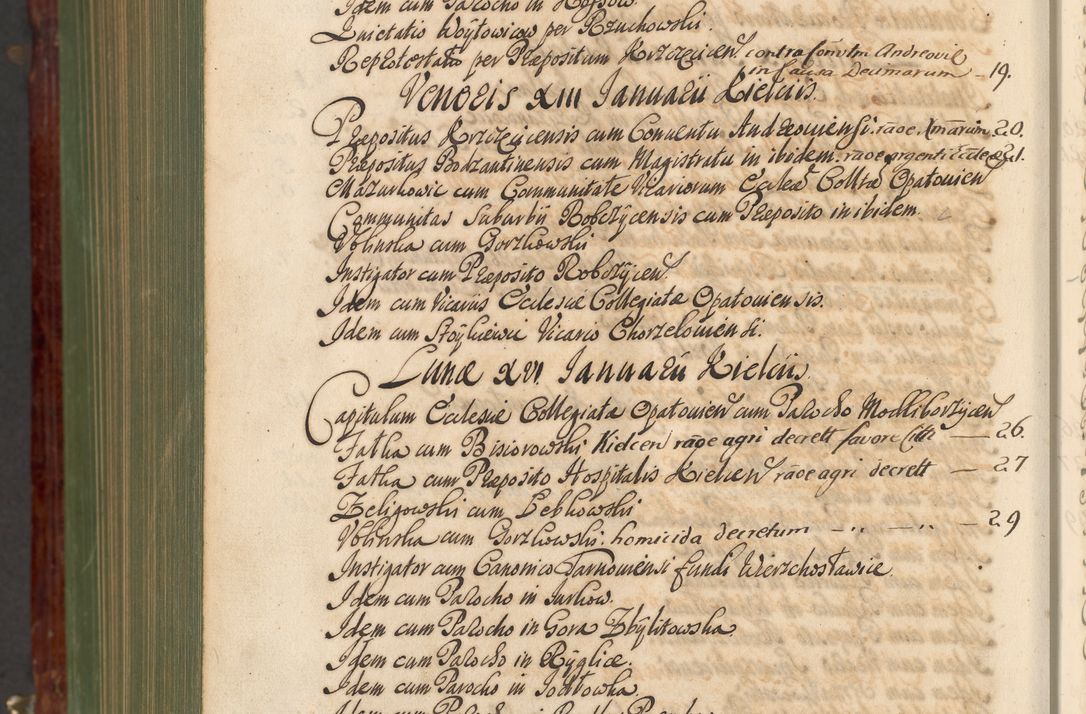 Idem cum Parocho in
Quietatio Woÿtowicow per Rzuchowski.
Reprotestatio per Præpositum Korzczÿcen contra Convtm Andreovie
in Causa Decimarum – 19.
Veneris XIII Januarii Kielciis.
Præpositus Korzczÿcensis cum Conventu Andreoviensi. raõe Xmarum. 20.
Præpositus Bodzantinensis cum Magistratu in ibidem. raõe argenti
Mazurkowic cum Communitate Vicariorum Ecclæ Colltæ Opatovien
Communitas Suburbii Robczÿcensis cum Præposito in ibidem.
Volinska cum Gorzkowski
Instigator cum Præposito Robczÿcen.
Idem cum Vicariis Ecclesiæ Collegiatæ Opatoviensis.
Idem cum Stoÿkiewic Vicario Chorzeloviensi.
Lunæ XVI Januarii Kielciis.
Capitulum Ecclesiæ Collegiatæ Opatovien cum Parocho Modliborzÿcen
Fatha cum Bisiorowski Kielcen raõe agri decrett favore Ctti — 26.
Fatha cum Præposito Hospitalis Kielcen raõe agri decrett — 27
Zeligowski cum Lebkowski
Volinska cum Gorzkowski. homicida decretum – „ – „ – 29
Instigator cum Canonico Tarnoviensi fundi Wierzchosławice.
Idem cum Parocho in Jurkow.
Idem cum Parocho in Gora Zbÿlitowska.
Idem cum Parocho in Rÿglice.
Idem cum Parocho in Jodłowka.
Idem cum Parocho in